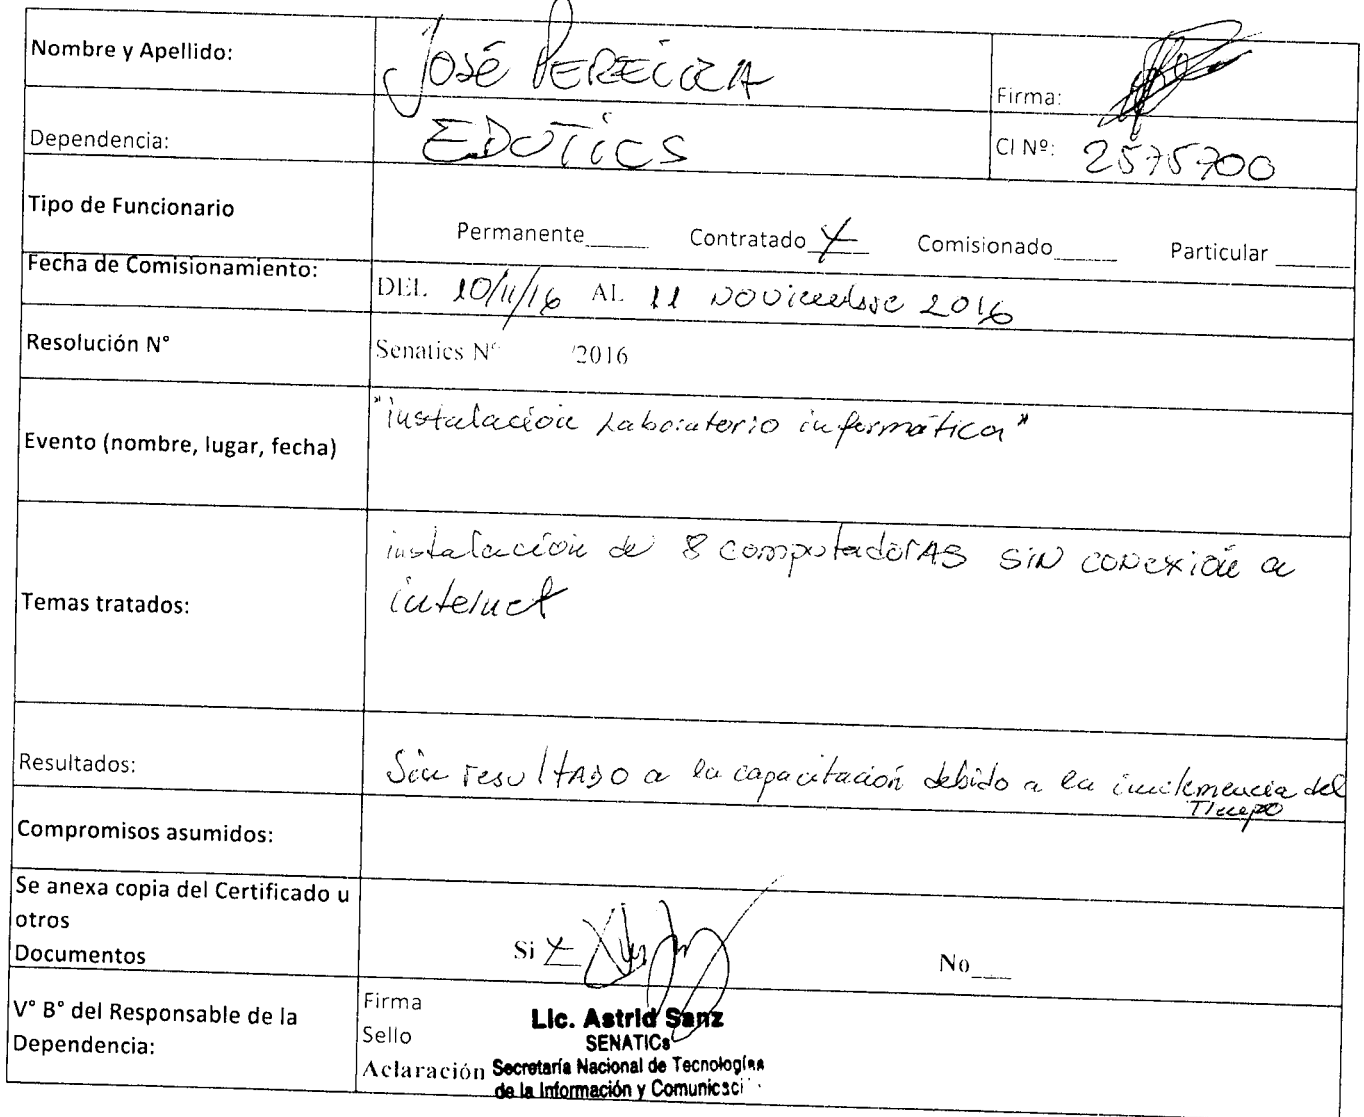 Nombre y Apellido: JOSÉ PEREIRA
Firma:
Dependencia: EDUTICS
CI Nº: 2575700
Tipo de Funcionario
Permanente_____ Contratado X Comisionado_____ Particular _____
Fecha de Comisionamiento: DEL 10/11/16 AL 11 NOViembre 2016
Resolución N° Senatics N° /2016
Evento (nombre, lugar, fecha) "instalación Laboratorio informática"
Temas tratados: instalación de 8 computadorAS SiN conexión a
internet
Resultados: Sin resultADO a la capacitación debido a la inclemencia del
Tiempo
Compromisos asumidos:
Se anexa copia del Certificado u
otros
Documentos
Si X No___
V° B° del Responsable de la
Dependencia:
Firma
Sello
Aclaración
Lic. Astrid Sanz
SENATICs
Secretaría Nacional de Tecnologías
de la Información y Comunicaci